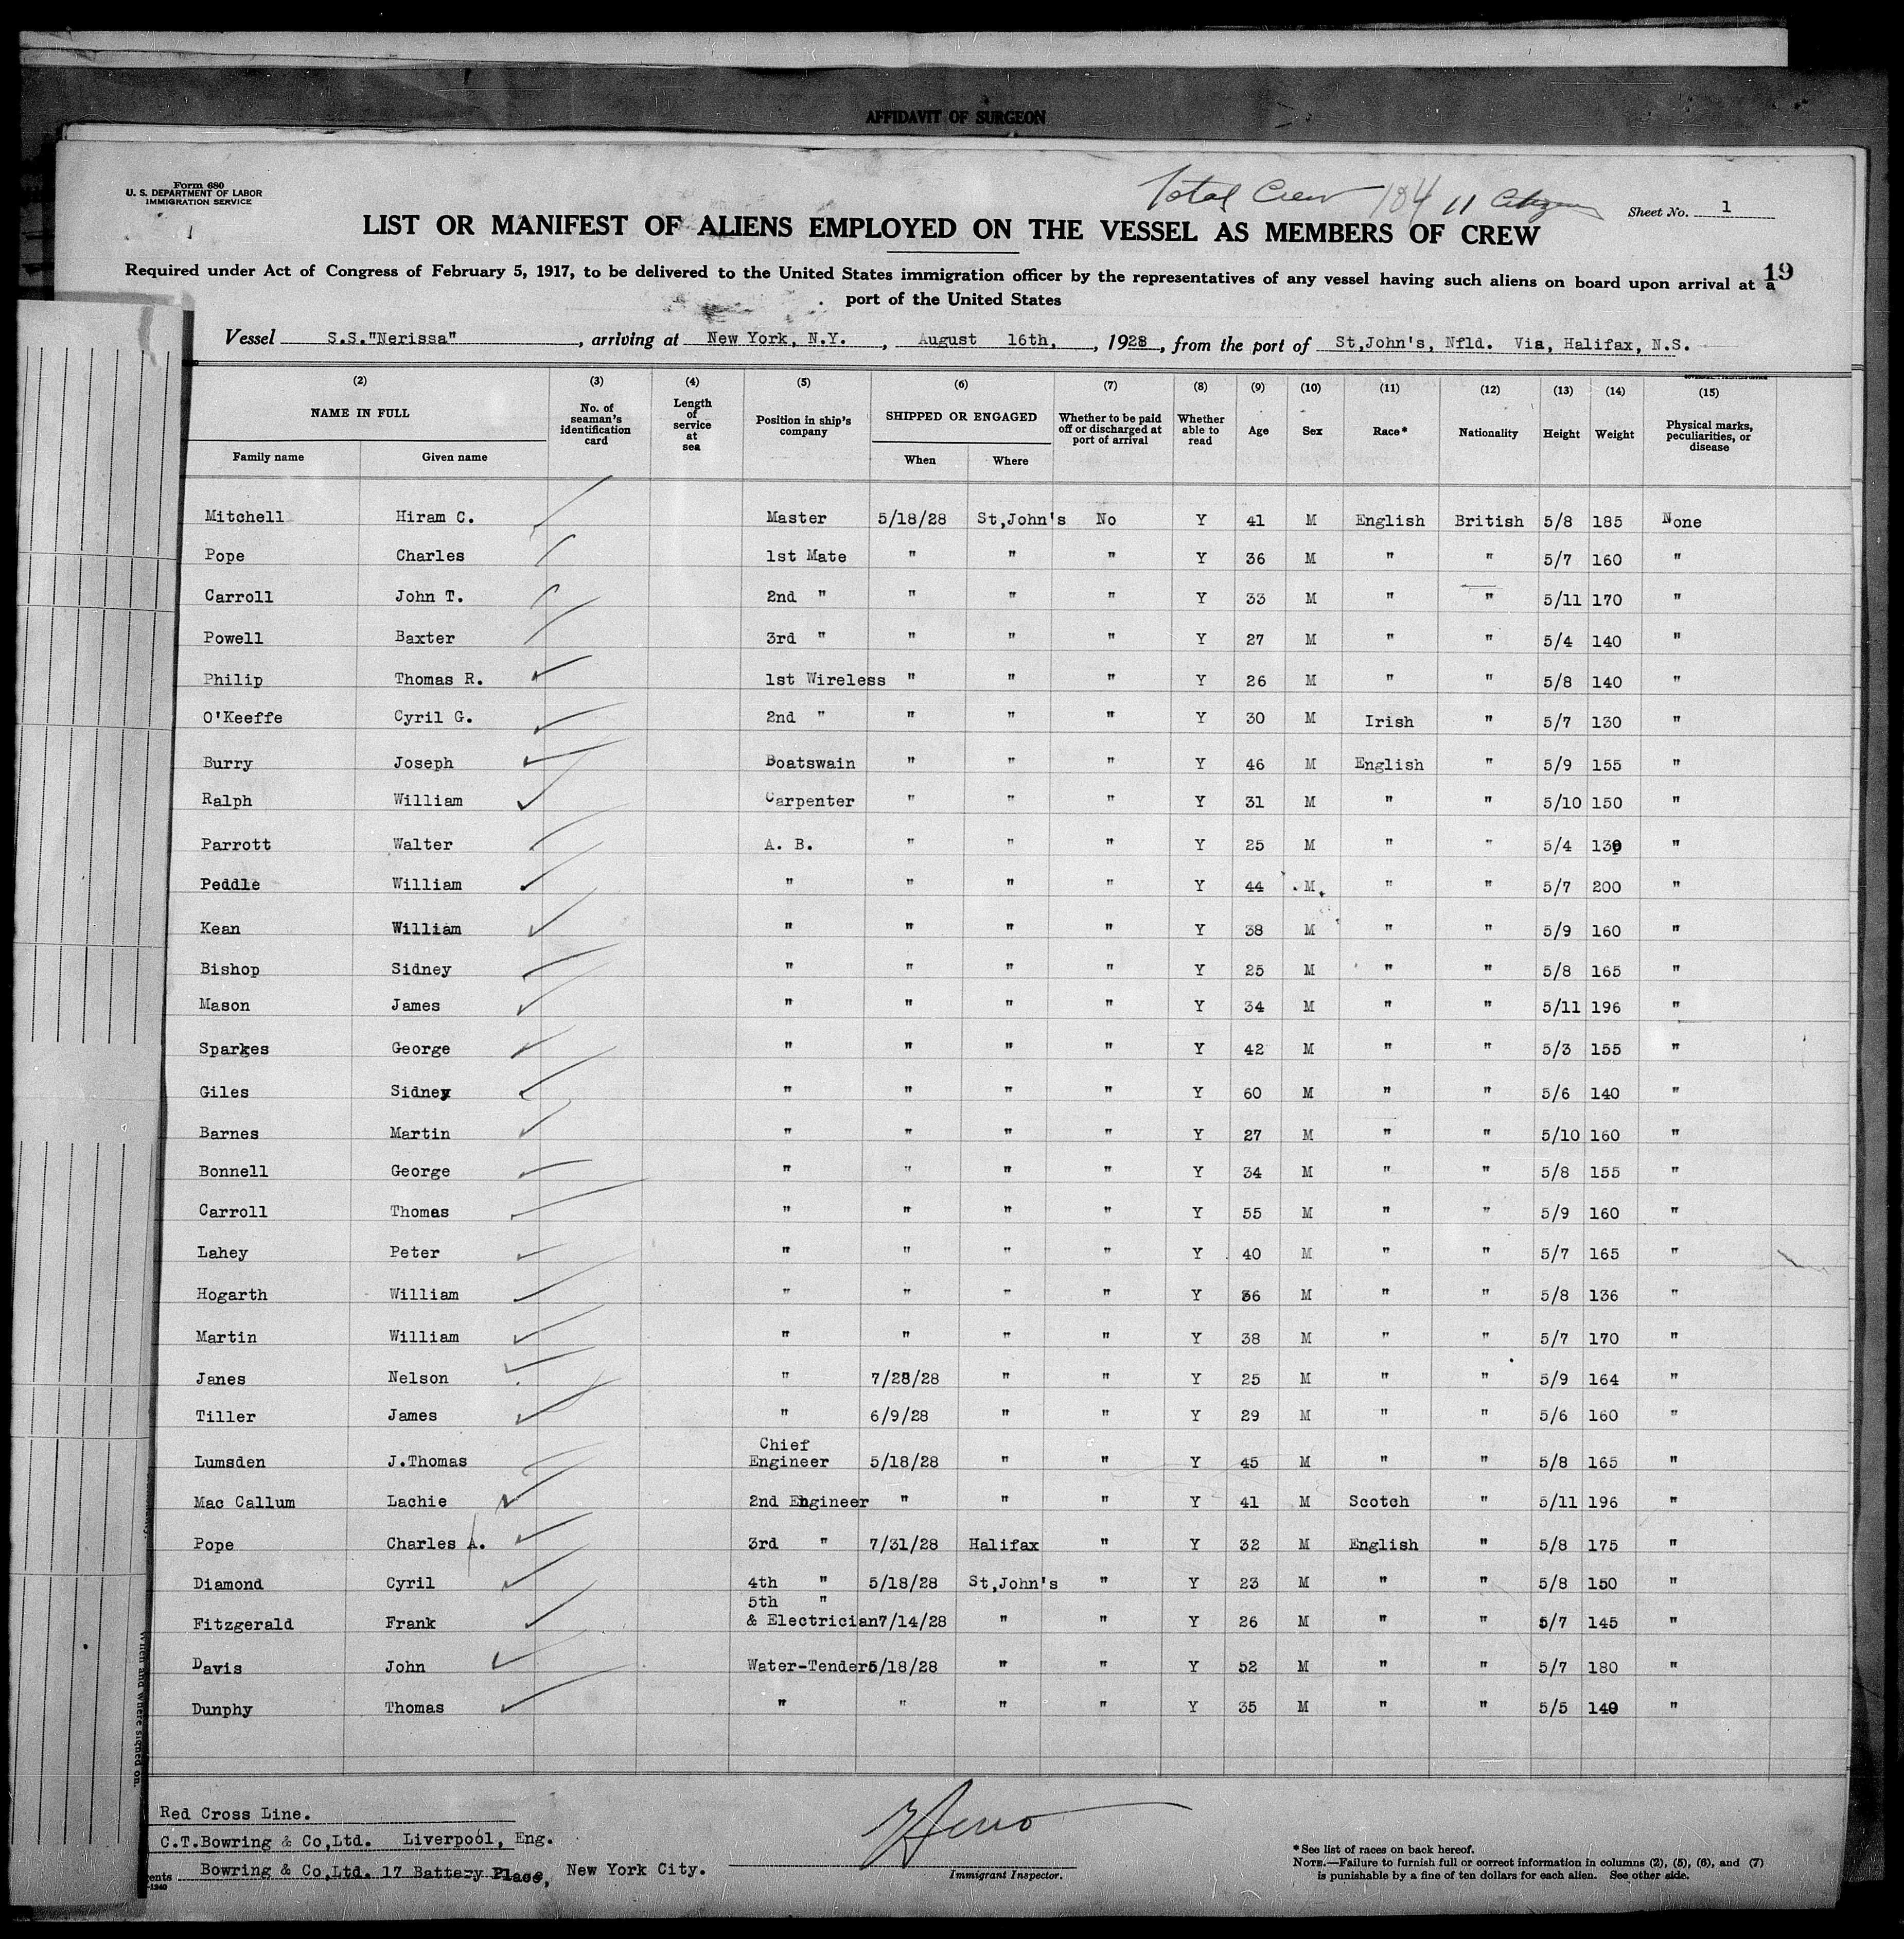 AFFIDAVIT OF SURGEON
Form 680
U. S. DEPARTMENT OF LABOR
IMMIGRATION SERVICE
Total Crew 104 11 Citizens
Sheet No. 1
LIST OR MANIFEST OF ALIENS EMPLOYED ON THE VESSEL AS MEMBERS OF CREW
19
Required under Act of Congress of February 5, 1917, to be delivered to the United States immigration officer by the representatives of any vessel having such aliens on board upon arrival at a
port of the United States
Vessel S.S."Nerissa", arriving at New York, N.Y., August 16th, , 1928, from the port of St,John's, Nfld. Via, Halifax, N.S.
(2) (3) (4) (5) (6) (7) (8) (9) (10) (11) (12) (13) (14) (15)
NAME IN FULL
Family name Given name
No. of seaman's identification card
Length of service at sea
Position in ship's company
SHIPPED OR ENGAGED
When Where
Whether to be paid off or discharged at port of arrival
Whether able to read
Age
Sex
Race*
Nationality
Height
Weight
Physical marks, peculiarities, or disease
Mitchell Hiram C. Master 5/18/28 St,John's No Y 41 M English British 5/8 185 None
Pope Charles 1st Mate " " " Y 36 M " " 5/7 160 "
Carroll John T. 2nd " " " " Y 33 M " " 5/11 170 "
Powell Baxter 3rd " " " " Y 27 M " " 5/4 140 "
Philip Thomas R. 1st Wireless " " " Y 26 M " " 5/8 140 "
O'Keeffe Cyril G. 2nd " " " " Y 30 M Irish " 5/7 130 "
Burry Joseph Boatswain " " " Y 46 M English " 5/9 155 "
Ralph William Carpenter " " " Y 31 M " " 5/10 150 "
Parrott Walter A. B. " " " Y 25 M " " 5/4 130 "
Peddle William " " " " Y 44 M " " 5/7 200 "
Kean William " " " " Y 38 M " " 5/9 160 "
Bishop Sidney " " " " Y 25 M " " 5/8 165 "
Mason James " " " " Y 34 M " " 5/11 196 "
Sparkes George " " " " Y 42 M " " 5/3 155 "
Giles Sidney " " " " Y 60 M " " 5/6 140 "
Barnes Martin " " " " Y 27 M " " 5/10 160 "
Bonnell George " " " " Y 34 M " " 5/8 155 "
Carroll Thomas " " " " Y 55 M " " 5/9 160 "
Lahey Peter " " " " Y 40 M " " 5/7 165 "
Hogarth William " " " " Y 36 M " " 5/8 136 "
Martin William " " " " Y 38 M " " 5/7 170 "
Janes Nelson " 7/28/28 " " Y 25 M " " 5/9 164 "
Tiller James " 6/9/28 " " Y 29 M " " 5/6 160 "
Lumsden J.Thomas Chief Engineer 5/18/28 " " Y 45 M " " 5/8 165 "
Mac Callum Lachie 2nd Engineer " " " Y 41 M Scotch " 5/11 196 "
Pope Charles A. 3rd " 7/31/28 Halifax " Y 32 M English " 5/8 175 "
Diamond Cyril 4th " 5/18/28 St,John's " Y 23 M " " 5/8 150 "
Fitzgerald Frank 5th " & Electrician 7/14/28 " " Y 26 M " " 5/7 145 "
Davis John Water-Tenders 5/18/28 " " Y 52 M " " 5/7 180 "
Dunphy Thomas " " " " Y 35 M " " 5/5 140 "
When and where signed on.
Red Cross Line.
C.T.Bowring & Co,Ltd. Liverpool, Eng.
Bowring & Co,Ltd. 17 Battery Place, New York City.
Immigrant Inspector.
*See list of races on back hereof.
NOTE.—Failure to furnish full or correct information in columns (2), (5), (6), and (7)
is punishable by a fine of ten dollars for each alien. See other side.